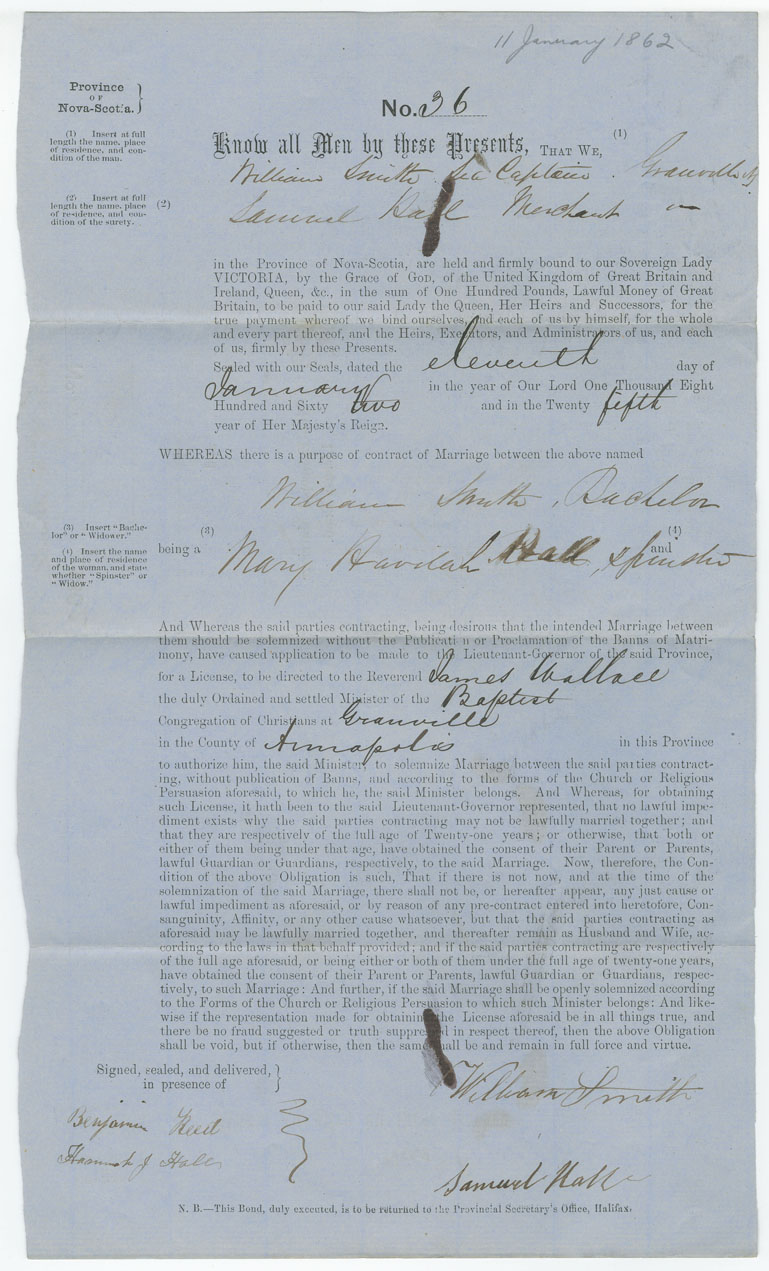 11 January 1862
Province
OF
Nova-Scotia.
No. 36
(1) Insert at full
length the name, place
of residence, and con-
dition of the man.
Know all Men by these Presents, THAT WE, (1)
William Smith Sea Captain. Granville
(2) Insert at full
length the name, place
of residence, and con-
dition of the surety.
(2)
Samuel Hall Merchant
in the Province of Nova-Scotia, are held and firmly bound to our Sovereign Lady
VICTORIA, by the Grace of GOD, of the United Kingdom of Great Britain and
Ireland, Queen, &c., in the sum of One Hundred Pounds, Lawful Money of Great
Britain, to be paid to our said Lady the Queen, Her Heirs and Successors, for the
true payment whereof we bind ourselves, and each of us by himself, for the whole
and every part thereof, and the Heirs, Executors, and Administrators of us, and each
of us, firmly by these Presents.
Sealed with our Seals, dated the eleventh day of
January in the year of Our Lord One Thousand Eight
Hundred and Sixty two and in the Twenty fifth
year of Her Majesty's Reign.
WHEREAS there is a purpose of contract of Marriage between the above named
William Smith, Bachelor
(3) Insert "Bache-
lor" or "Widower."
(4) Insert the name
and place of residence
of the woman, and state
whether "Spinster" or
"Widow."
being a (3) and (4)
Mary Havilah Hall, spinster
And Whereas the said parties contracting, being desirous that the intended Marriage between
them should be solemnized without the Publication or Proclamation of the Banns of Matri-
mony, have caused application to be made to the Lieutenant-Governor of the said Province,
for a License, to be directed to the Reverend James Wallace
the duly Ordained and settled Minister of the Baptist
Congregation of Christians at Granville
in the County of Annapolis in this Province
to authorize him, the said Minister, to solemnize Marriage between the said parties contract-
ing, without publication of Banns, and according to the forms of the Church or Religious
Persuasion aforesaid, to which he, the said Minister belongs. And Whereas, for obtaining
such License, it hath been to the said Lieutenant-Governor represented, that no lawful impe-
diment exists why the said parties contracting may not be lawfully married together; and
that they are respectively of the full age of Twenty-one years; or otherwise, that both or
either of them being under that age, have obtained the consent of their Parent or Parents,
lawful Guardian or Guardians, respectively, to the said Marriage. Now, therefore, the Con-
dition of the above Obligation is such, That if there is not now, and at the time of the
solemnization of the said Marriage, there shall not be, or hereafter appear, any just cause or
lawful impediment as aforesaid, or by reason of any pre-contract entered into heretofore, Con-
sanguinity, Affinity, or any other cause whatsoever, but that the said parties contracting as
aforesaid may be lawfully married together, and thereafter remain as Husband and Wife, ac-
cording to the laws in that behalf provided; and if the said parties contracting are respectively
of the full age aforesaid, or being either or both of them under the full age of twenty-one years,
have obtained the consent of their Parent or Parents, lawful Guardian or Guardians, respec-
tively, to such Marriage: And further, if the said Marriage shall be openly solemnized according
to the Forms of the Church or Religious Persuasion to which such Minister belongs: And like-
wise if the representation made for obtaining the License aforesaid be in all things true, and
there be no fraud suggested or truth suppressed in respect thereof, then the above Obligation
shall be void, but if otherwise, then the same shall be and remain in full force and virtue.
Signed, sealed, and delivered,
in presence of
William Smith
Benjamin
Hannah J Hall
Samuel Hall
N. B.—This Bond, duly executed, is to be returned to the Provincial Secretary's Office, Halifax.